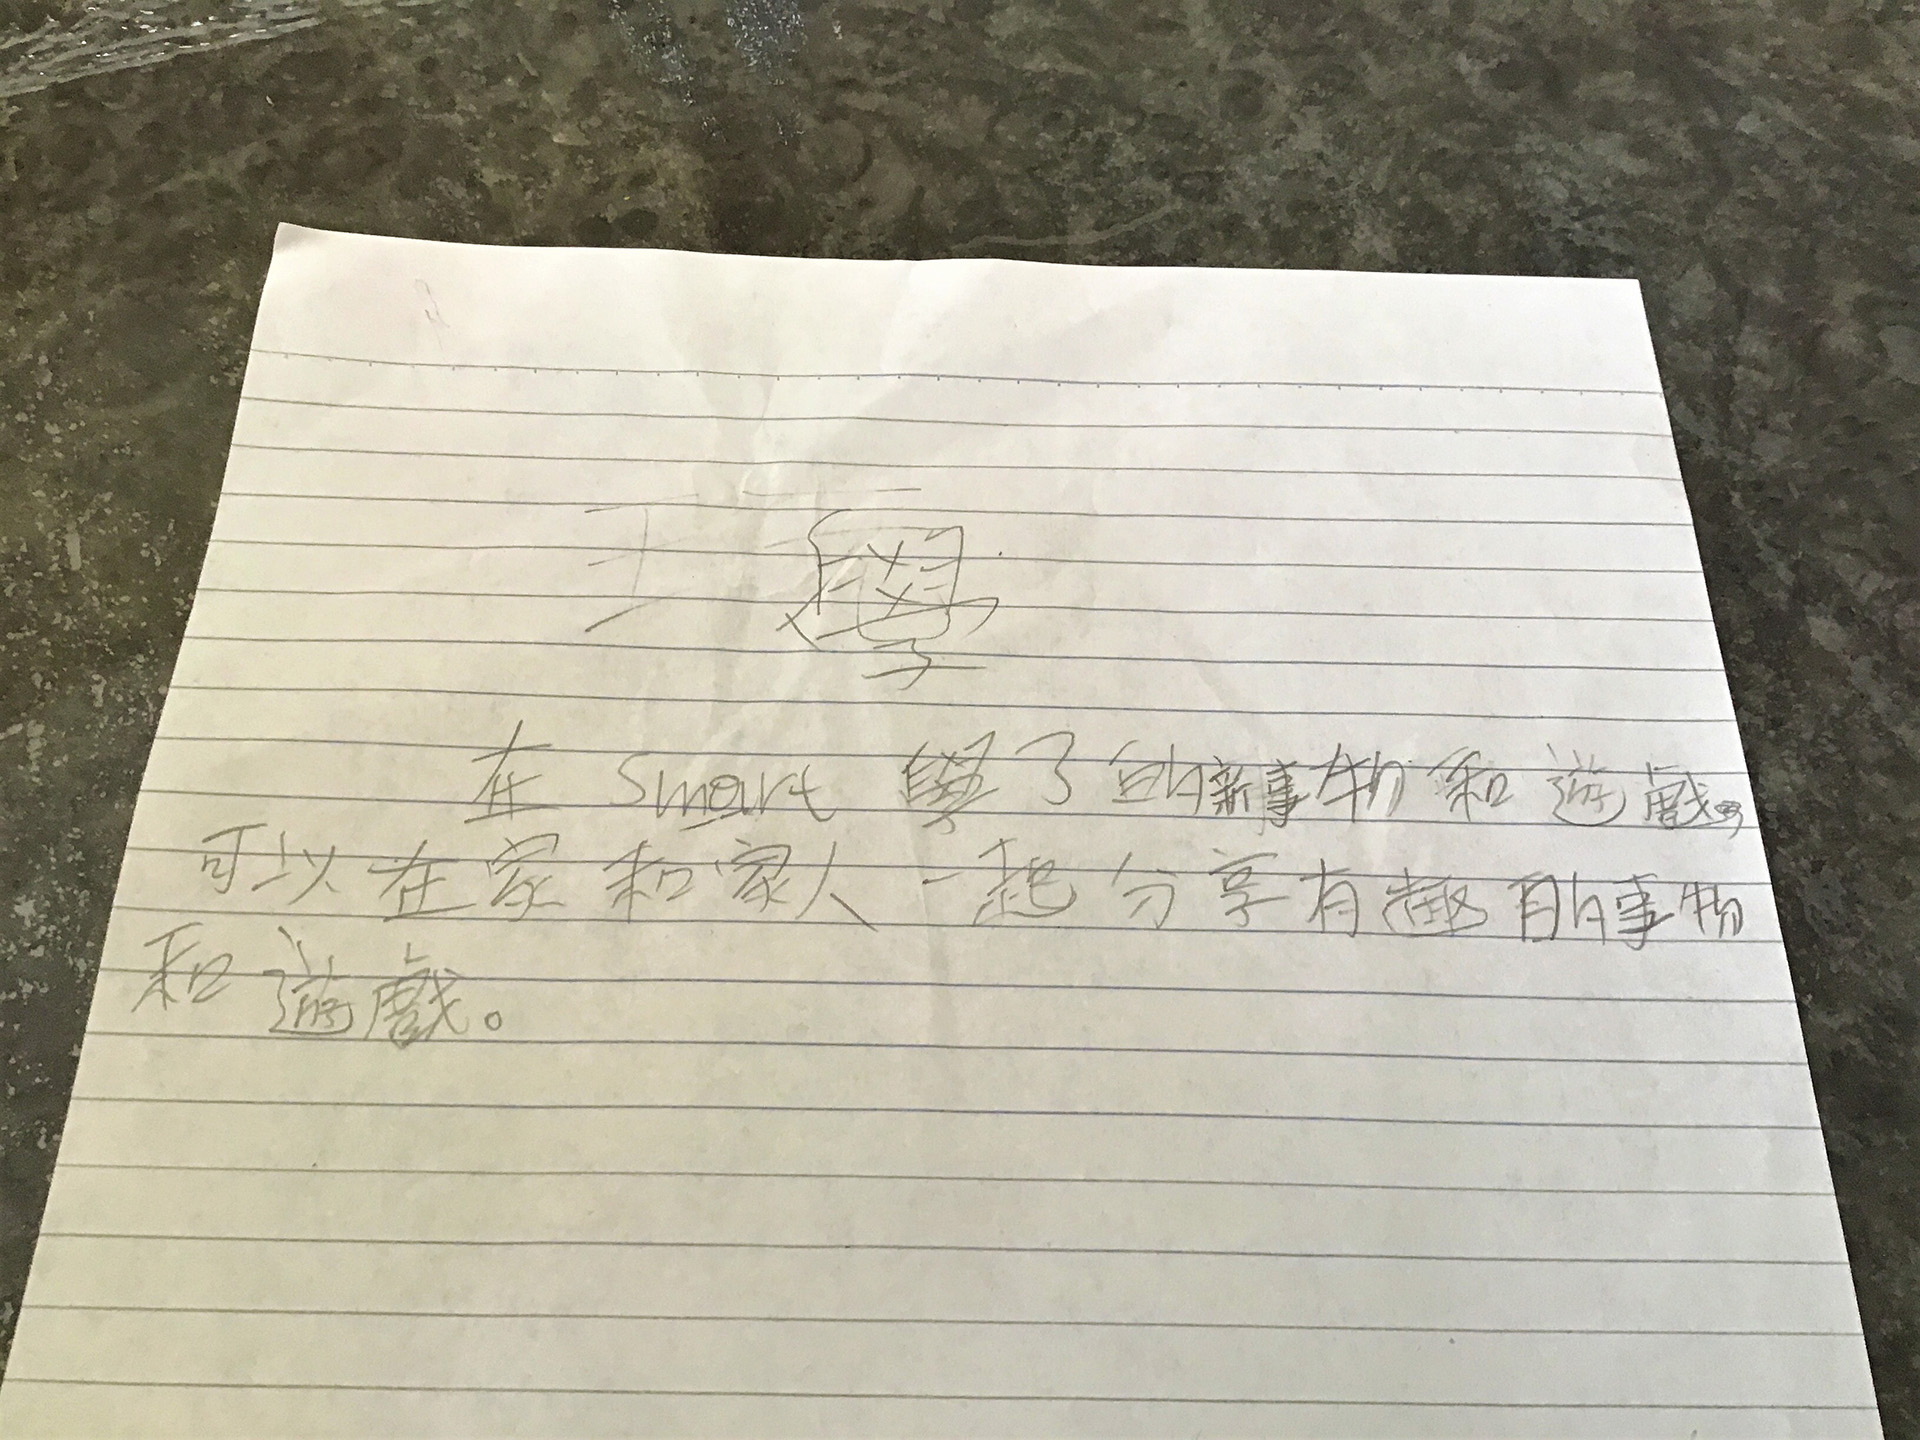 學
在 Smart 學了的新事物和遊戲,
可以在家和家人一起分享有趣的事物
和遊戲。